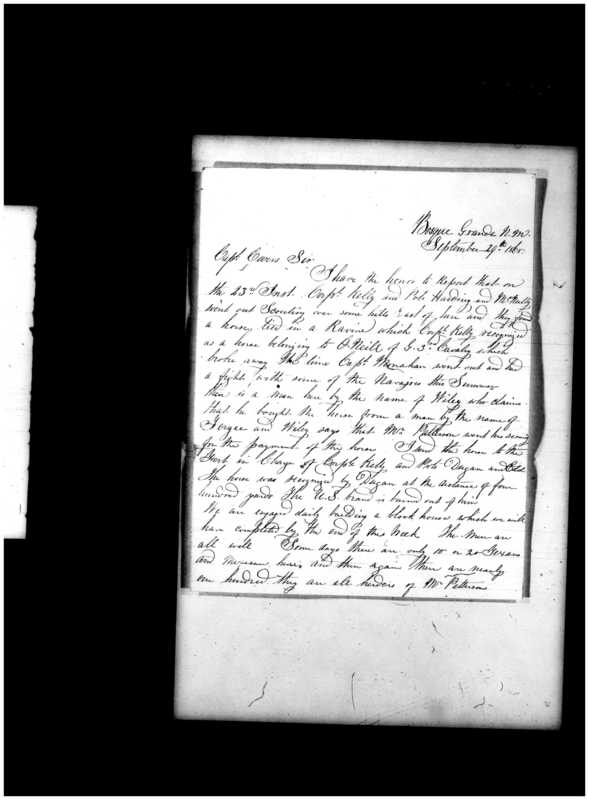 Bosque Grande N.M.
September 29th 186
Capt. Sir
I have the honor to Report that on
the 23rd Inst. Corpl. Kelly and Pvts Harding and McNally
went out Scouting over some hills East of here and they found
a horse tied in a Ravine which Corpl. Kelly recognized
as a horse belonging to O'Neill of G. 3rd Cavalry which
broke away the time Capt. Monahan went out and had
a fight with some of the Navajoes this Summer
there is a man here by the name of Wiley who claims
that he bought the horse from a man by the name of
and Wiley says that Mr. Patterson went his security
for the payment of the horse I send the horse to the
Post in Charge of Corpl. Kelly and Pvts Dugan and
The horse was recognized by Dugan at the distance of four
hundred yards The U.S. brand is burned out of him
We are engaged daily building a block house which we will
have completed by the end of this Week The men are
all well Some days there are only 10 or 20 Texans
and Mexicans here and then again there are nearly
one hundred they are all herders of Mr Patterson